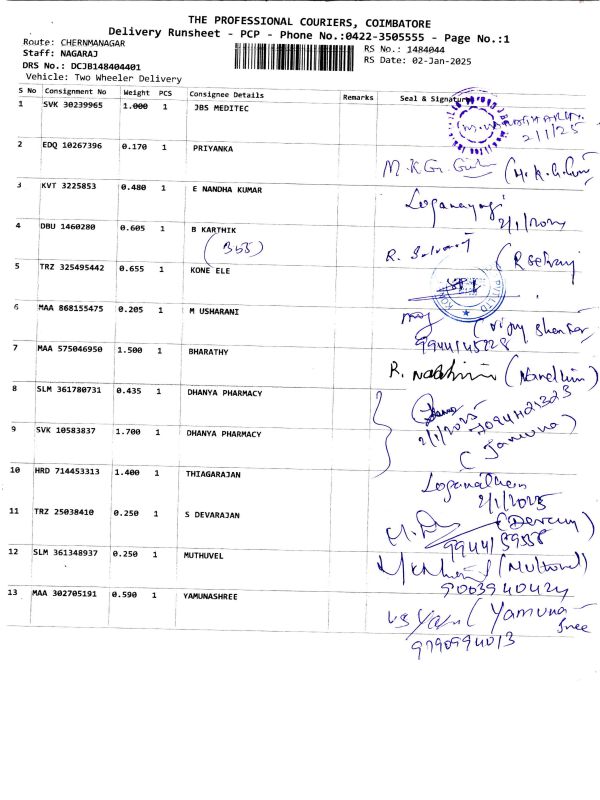 THE PROFESSIONAL COURIERS, COIMBATORE
Delivery Runsheet - PCP - Phone No.:0422-3505555 - Page No.:1
Route: CHERNMANAGAR
RS No.: 1484044
Staff: NAGARAJ
RS Date: 02-Jan-2025
DRS No.: DCJB148404401
Vehicle: Two Wheeler Delivery
S No Consignment No Weight PCS Consignee Details Remarks Seal & Signature
1 SVK 30239965 1.000 1 JBS MEDITEC
2/1/25
2 EDQ 10267396 0.170 1 PRIYANKA
M.K.G.
3 KVT 3225853 0.480 1 E NANDHA KUMAR
Loganayagi
4 DBU 1460280 0.605 1 B KARTHIK
(355)
R. (R Selvaraj
5 TRZ 325495442 0.655 1 KONE ELE
6 MAA 868155475 0.205 1 M USHARANI
(Vijay Shankar
9944145228
7 MAA 575046950 1.500 1 BHARATHY
R. (Nandhini)
8 SLM 361780731 0.435 1 DHANYA PHARMACY
2/1/2025
9 SVK 10583837 1.700 1 DHANYA PHARMACY
(Jamuna)
10 HRD 714453313 1.400 1 THIAGARAJAN
Loganathan
2/1/2025
11 TRZ 25038410 0.250 1 S DEVARAJAN
12 SLM 361348937 0.250 1 MUTHUVEL
9003940424
13 MAA 302705191 0.590 1 YAMUNASHREE
(Yamuna
Sree
9790994013